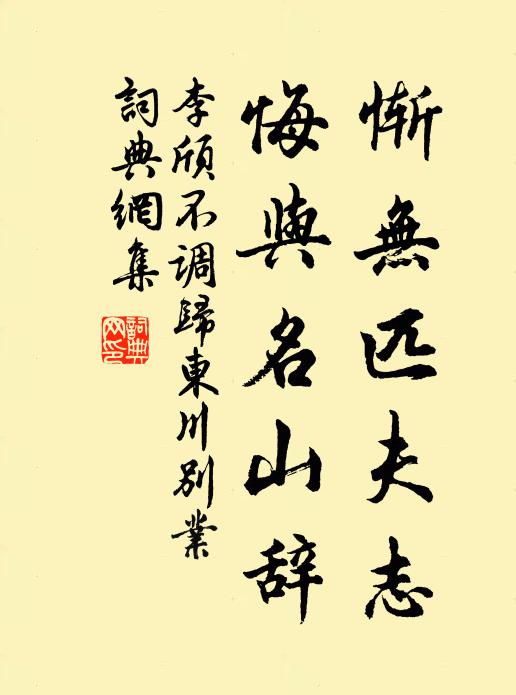 惭無匹夫志
悔與名山辞
李頎不調歸東川別業
詞典網集
詞典
网印